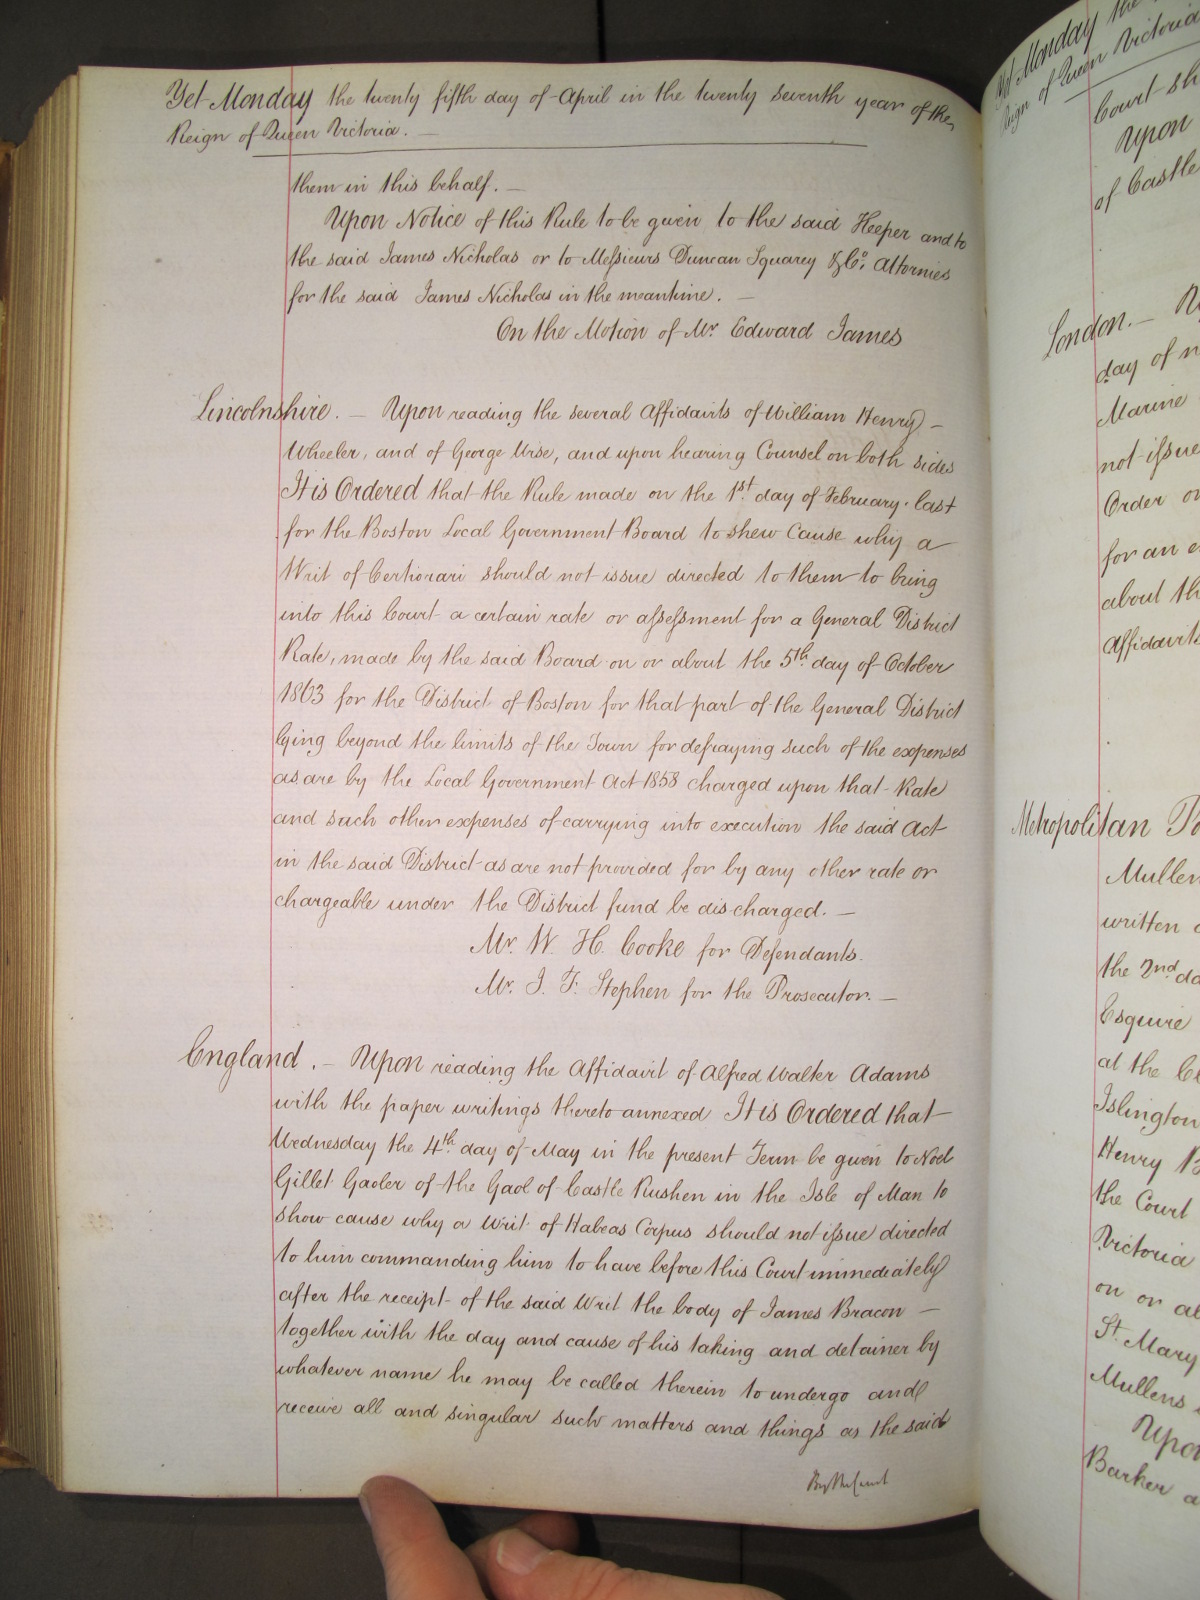 Yet Monday the twenty fifth day of April in the twenty seventh year of the
Reign of Queen Victoria. —
them in this behalf. —
Upon Notice of this Rule to be given to the said Keeper and to
the said James Nicholas or to Messieurs Duncan Squarey & Co. Attornies
for the said James Nicholas in the meantime. —
On the Motion of Mr. Edward James
Lincolnshire. — Upon reading the several Affidavits of William Henry —
Wheeler, and of George Wise, and upon hearing Counsel on both sides
It is Ordered that the Rule made on the 1st day of February last
for the Boston Local Government Board to shew Cause why a
Writ of Certiorari should not issue directed to them to bring
into this Court a certain rate or assessment for a General District
Rate, made by the said Board on or about the 5th day of October
1863 for the District of Boston for that part of the General District
lying beyond the limits of the Town for defraying such of the expenses
as are by the Local Government Act 1858 charged upon that Rate
and such other expenses of carrying into execution the said Act
in the said District as are not provided for by any other rate or
chargeable under the District fund be discharged. —
Mr. W. H. Cooke for Defendants.
Mr. J. F. Stephen for the Prosecutor. —
England. — Upon reading the Affidavit of Alfred Walter Adams
with the paper writings thereto annexed It is Ordered that
Wednesday the 4th day of May in the present Term be given to Noel
Gillet Gaoler of the Gaol of Castle Rushen in the Isle of Man to
show cause why a Writ of Habeas Corpus should not issue directed
to him commanding him to have before this Court immediately
after the receipt of the said Writ the body of James Bracon —
together with the day and cause of his taking and detainer by
whatever name he may be called therein to undergo and
receive all and singular such matters and things as the said
By the Court
Yet Monday the
Reign of Queen Victoria
Court
Upon
of Castle
London. —
day of
Marine
not issue
Order
for an
about
Affidavits
Metropolitan
Mullen
written
the 2nd
Esquire
at the
Islington
Henry
the Court
Victoria
on or
St. Mary
Mullens
Upon
Barker